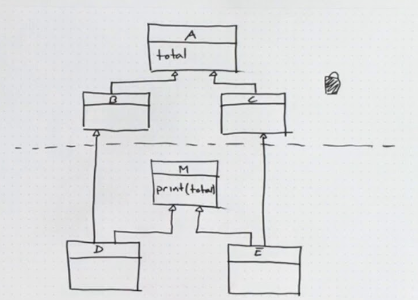 A
total
B
C
M
print(total)
D
E